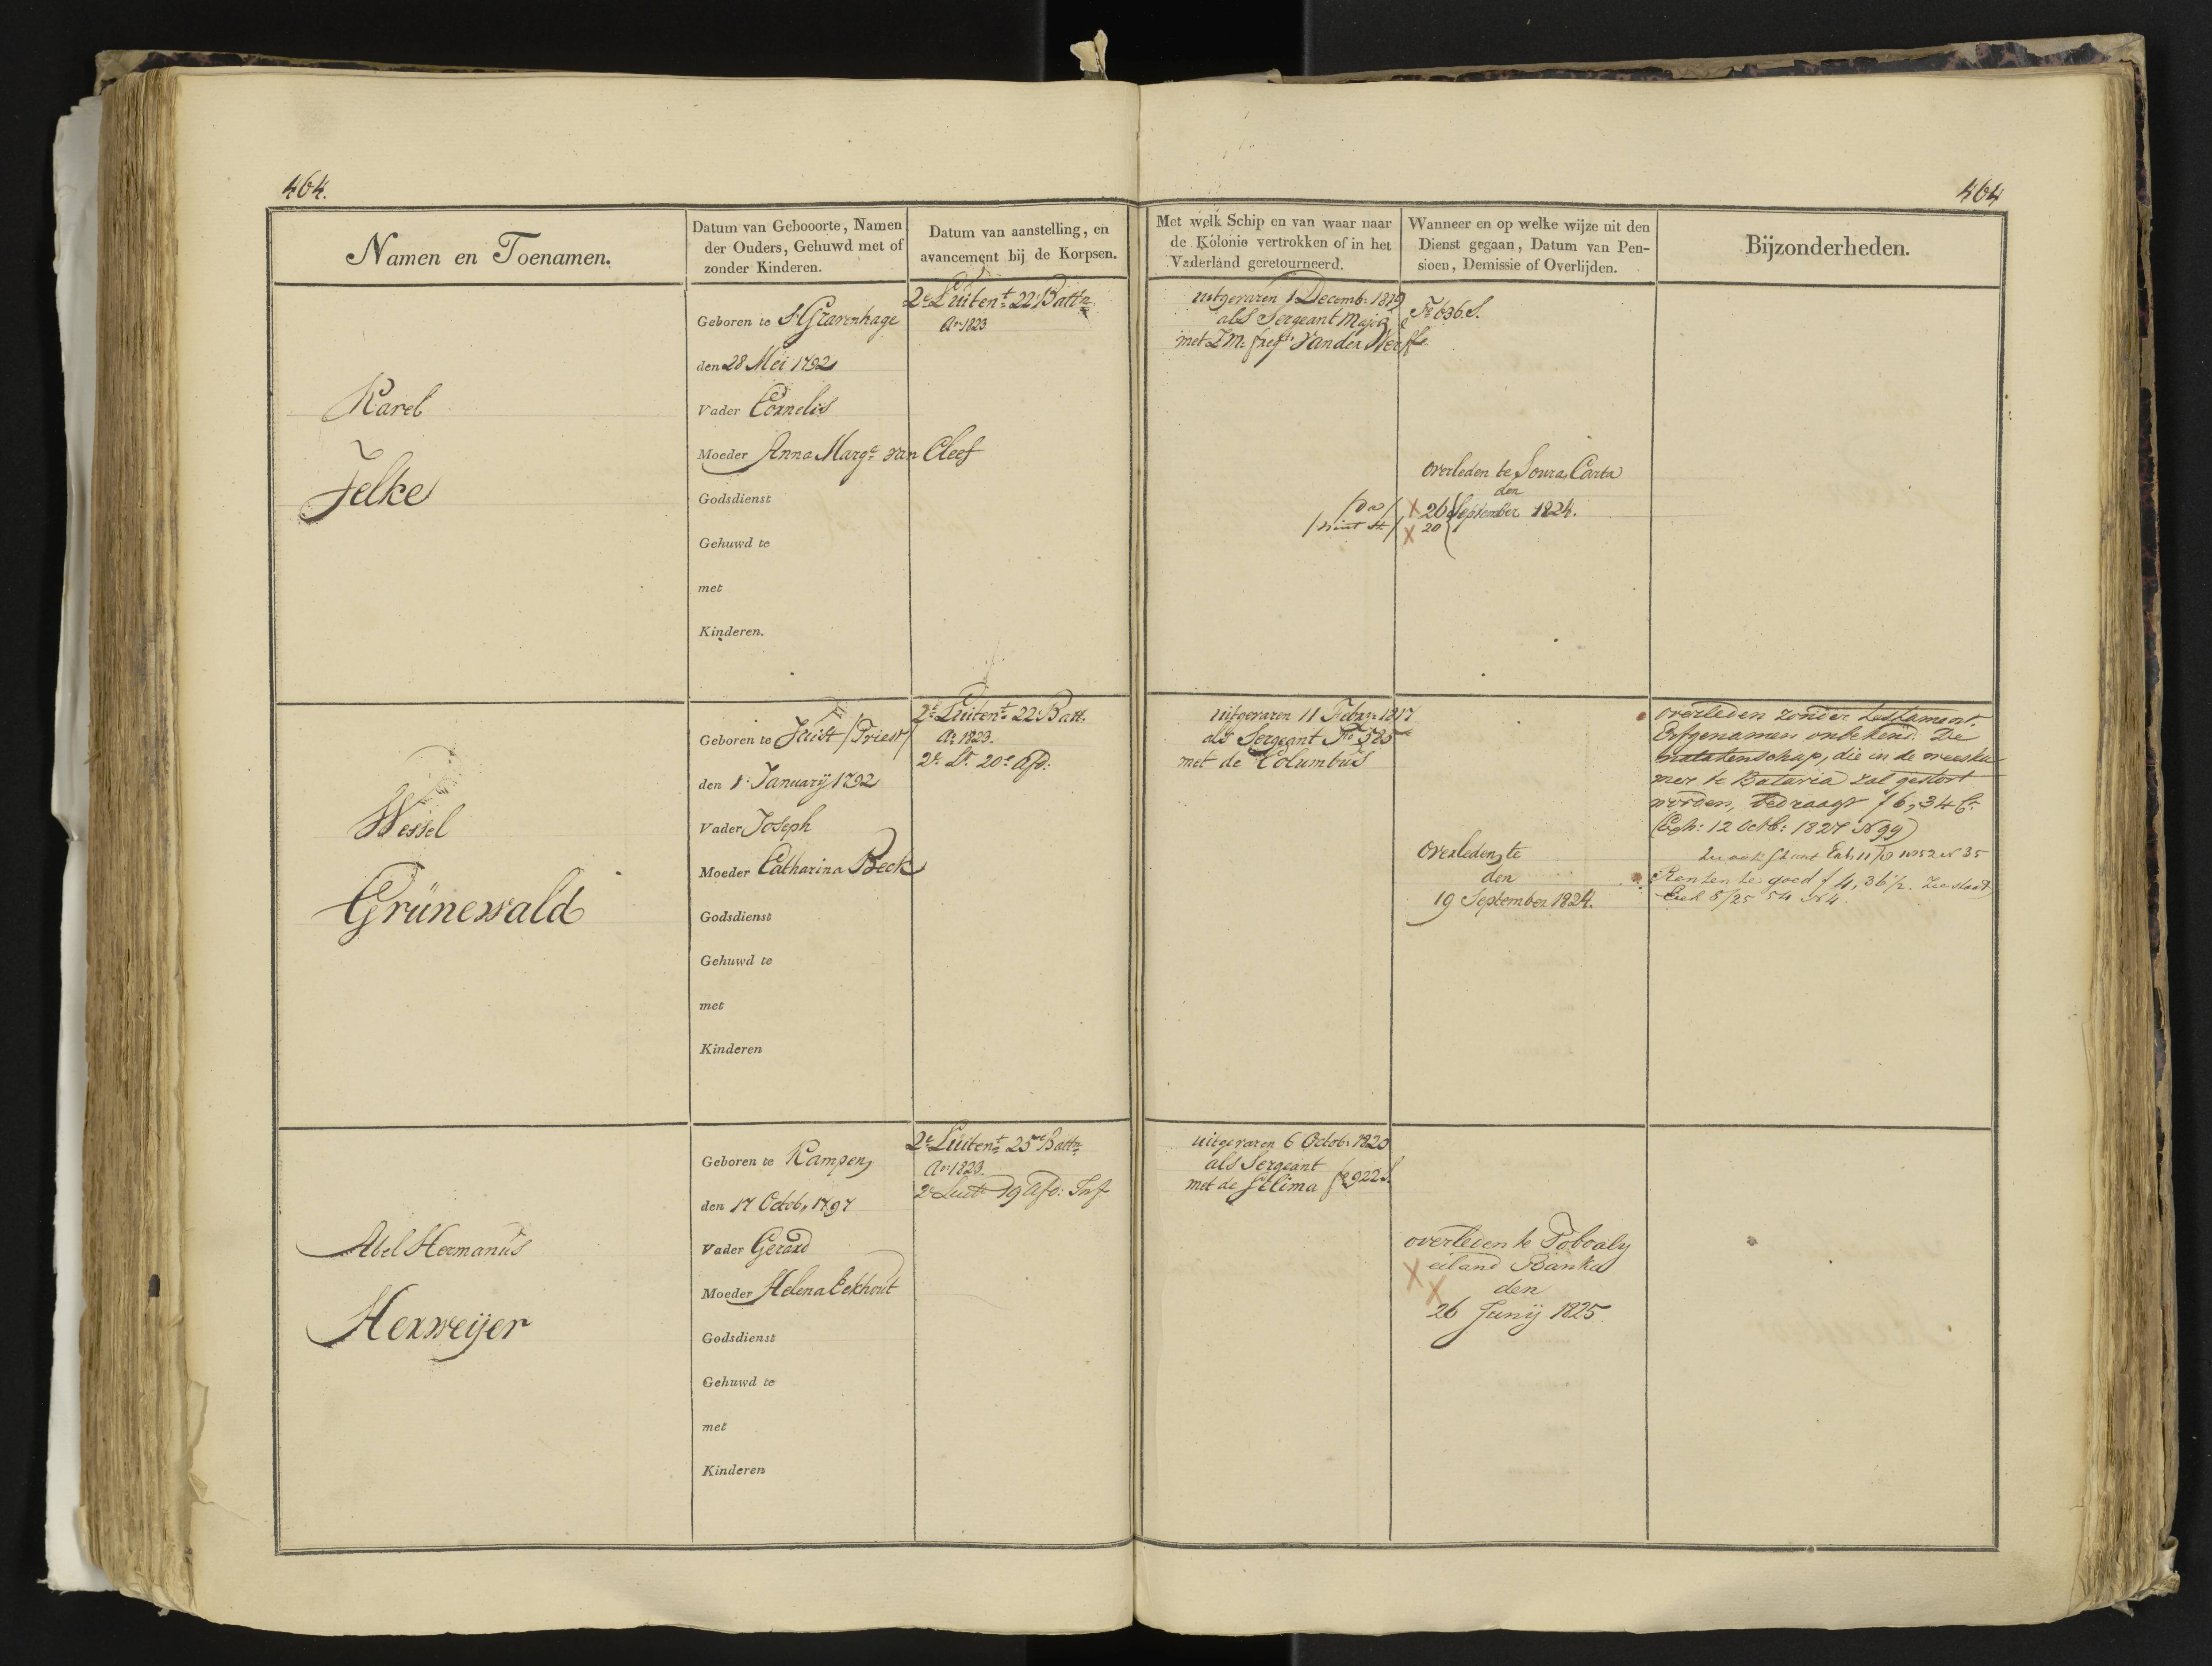 464.
464
Namen en Toenamen.
Datum van Gebooorte, Namen
der Ouders, Gehuwd met of
zonder Kinderen.
Datum van aanstelling, en
avancement bij de Korpsen.
Met welk Schip en van waar naar
de Kolonie vertrokken of in het
Vaderland geretourneerd.
Wanneer en op welke wijze uit den
Dienst gegaan, Datum van Pen-
sioen, Demissie of Overlijden.
Bijzonderheden.
Karel
Jelke
Geboren te S Gravenhage
den 28 Mei 1792
Vader Cornelis
Moeder Anna Marge van Cleef
Godsdienst
Gehuwd te
met
Kinderen.
2e Luitent 22 Battn
Ao 1823
uitgevaren 1 Decemb: 1819
als Sergeant Majoor
met Z.M. freg. van der Werff
636.S.
overleden te Soura Carta
den
26 September 1824.
20
Wessel
Grünewald
Geboren te Juist /Triest/
den 1 Januarij 1792
Vader Joseph
Moeder Catharina Beck
Godsdienst
Gehuwd te
met
Kinderen
2e Luitent 22 Batt.
Ao 1823.
2e Lt. 20e Afd:
uitgevaren 11 Febry 1817
als Sergeant 585
met de Columbus
Overleden te
den
19 September 1824.
overleden zonder testament.
Erfgenamen onbekend. De
nalatenschap, die in de weeska-
mer te Batavia zal gestort
worden, bedraagt f 6,34
12 Octb: 1827 N 99)
Zie ook 35
Renten te goed f 4,36½. Zie staat
8/25 54 N4.
Abel Hermanus
Herweijer
Geboren te Kampen
den 17 Octob. 1797
Vader Gerard
Moeder Helena Eekhout
Godsdienst
Gehuwd te
met
Kinderen
2e Luitent 25e Battn
Ao 1823.
2e Luit 19 Afd: Inf
uitgevaren 6 Octob: 1820
als Sergeant
met de Selima fo 922 S.
overleden te Toboaly
eiland Banka
den
26 Junij 1825.